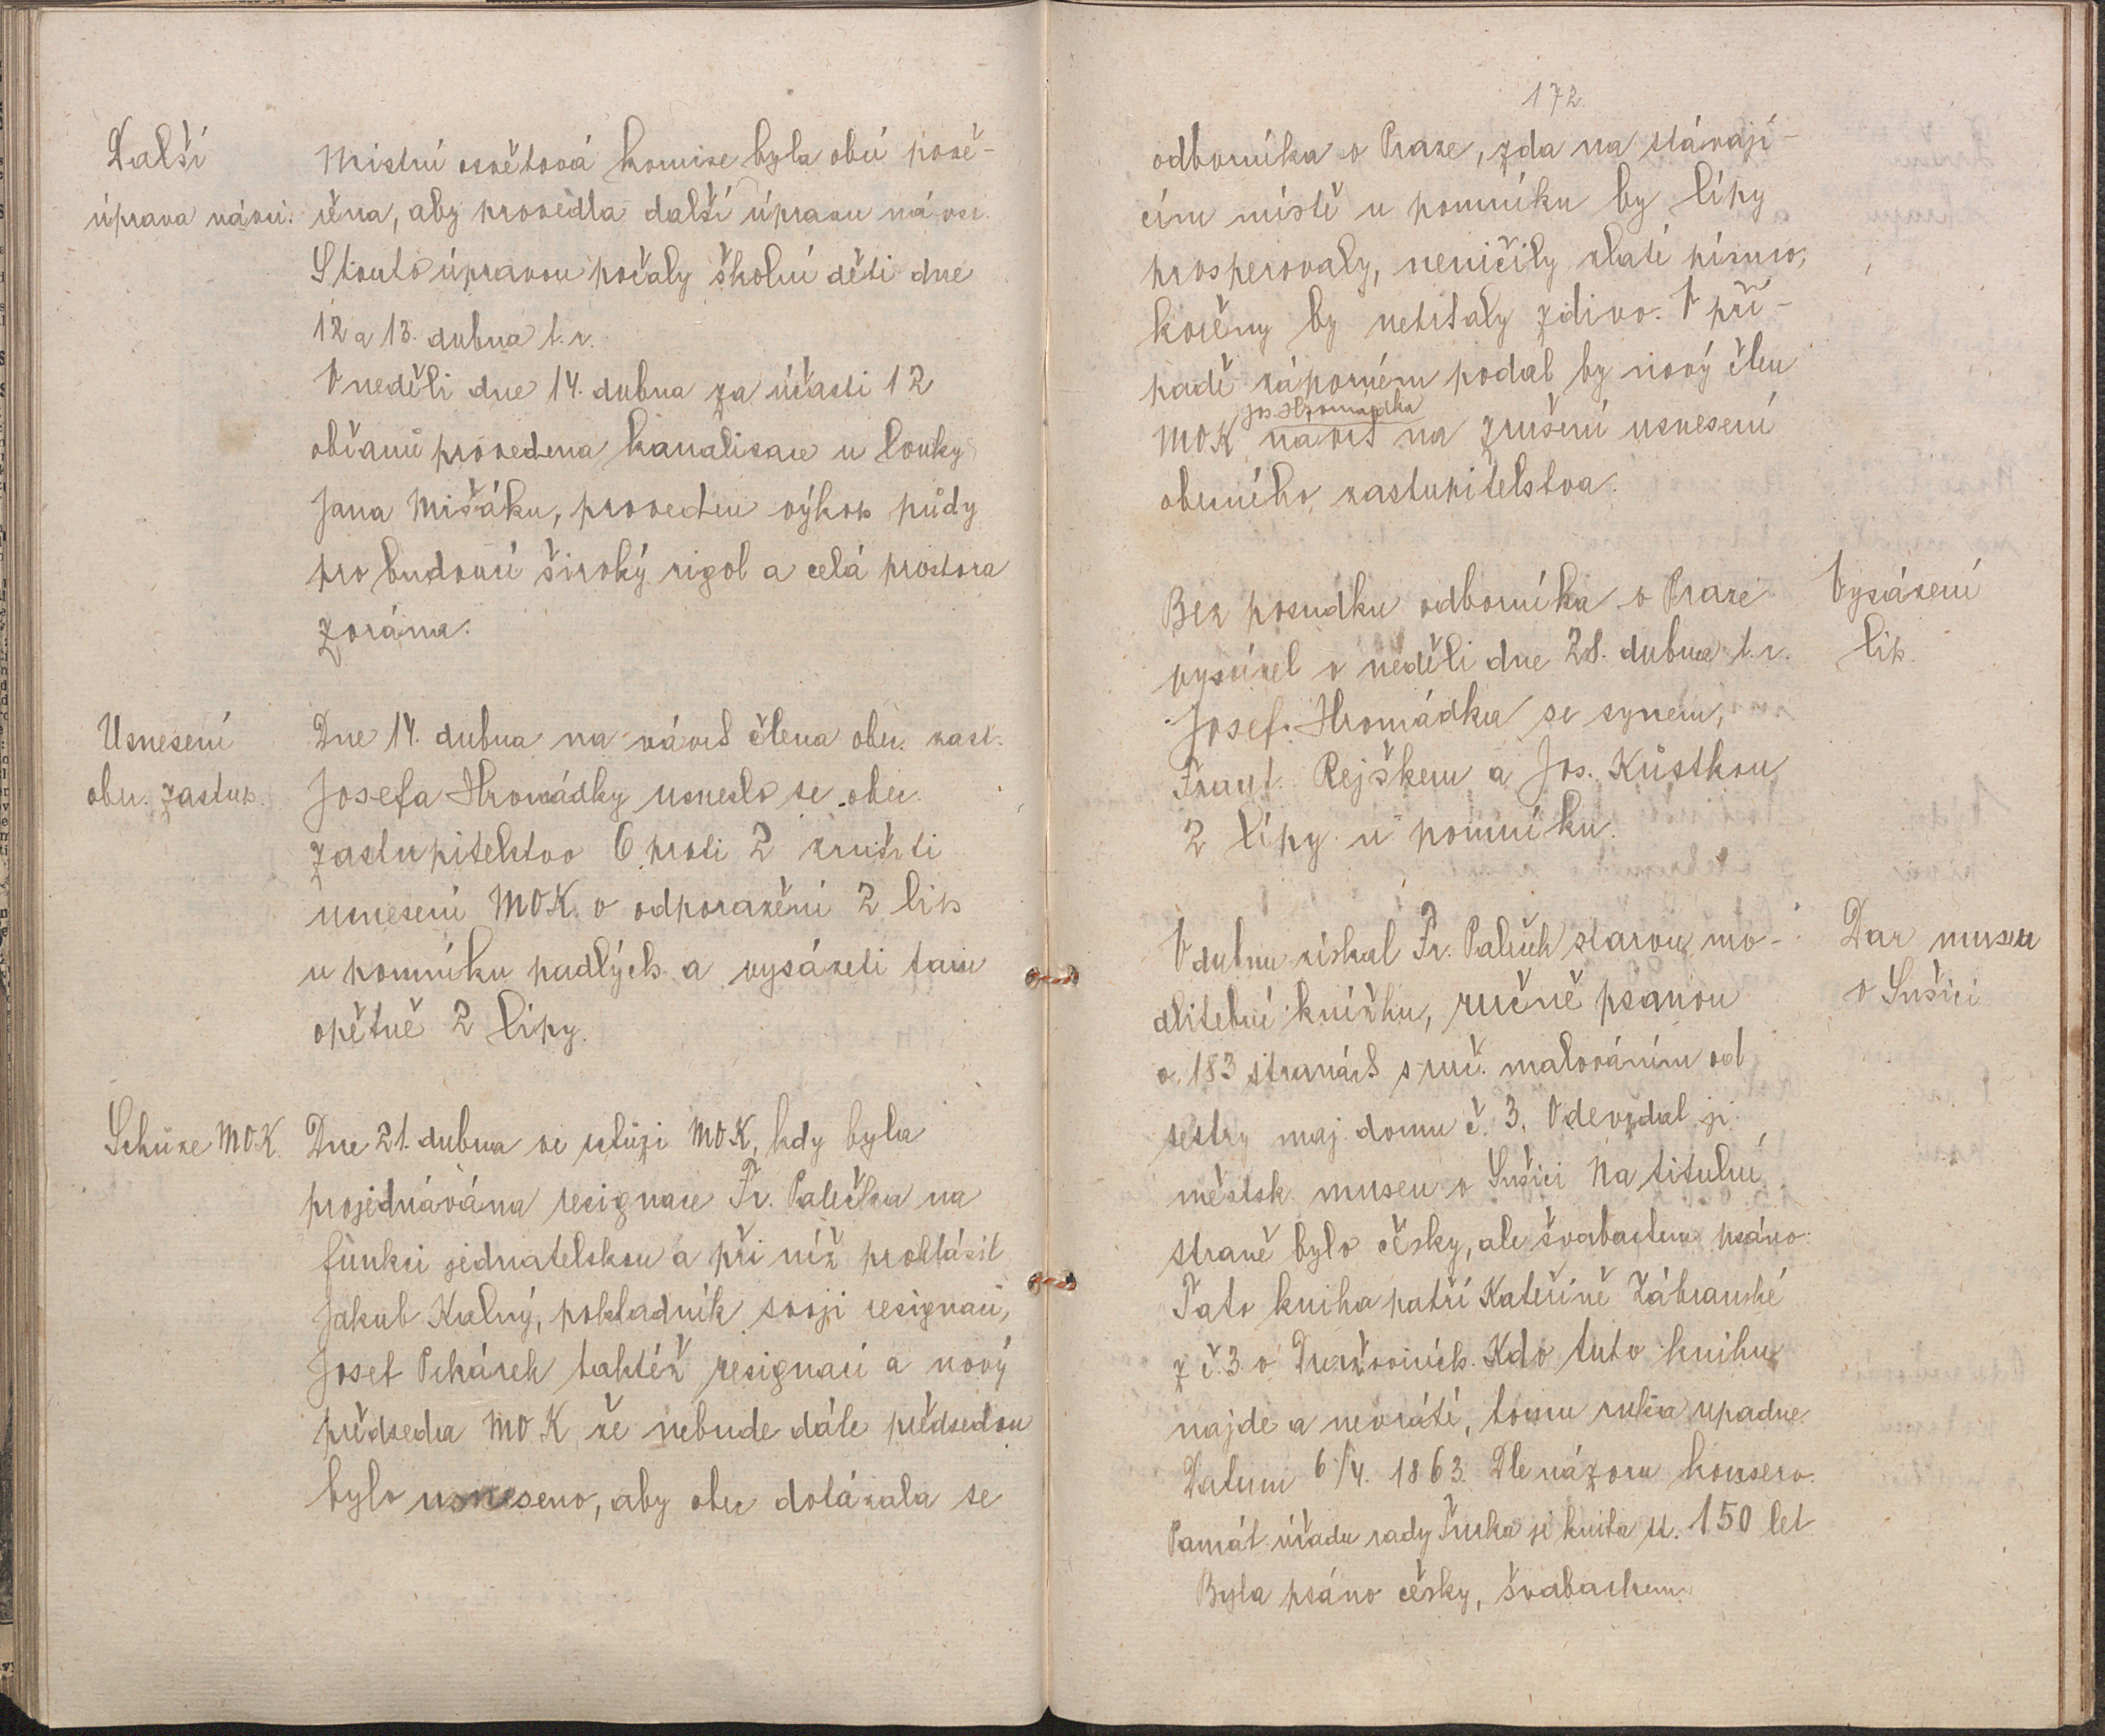 Další
úprava návsi.
Místní osvětová komise byla obcí pově-
řena, aby provedla další úpravu návsi.
S touto úpravou počaly školní děti dne
12 a 13. dubna t. r.
V neděli dne 14. dubna za účasti 12
občanů provedena kanalisace u louky
Jana Mišáku, proveden výkop půdy
pro budoucí široký rigol a celá prostora
zorána.
Usnesení
obec. zastup.
Dne 14. dubna na návrh člena obec. zast.
Josefa Hromádky usneslo se obec.
zastupitelstvo 6 proti 2 zrušiti
usnesení MOK o odporažení 2 lip
u pomníku padlých a vysázeti tam
opětně 2 lípy.
Schůze MOK.
Dne 21. dubna ve schůzi MOK, kdy byla
projednávána resignace Fr. Palečka na
funkci jednatelskou a při níž prohlásil
Jakub Kalný, pokladník svoji resignaci,
Josef Pekárek taktéž resignaci a nový
předseda MOK, že nebude dále předsedou
bylo usneseno, aby obec dotázala se
172.
odborníka v Praze, zda na stávají-
cím místě u pomníku by lípy
prosperovaly, neničily zlaté písmo,
kořeny by netrhaly zdivo. V pří-
padě záporném podal by nový člen
Jos. Hromádka
MOK návrh na zrušení usnesení
obecního zastupitelstva.
Bez posudku odborníka v Praze
vysázel v neděli dne 28. dubna t. r.
Josef Hromádka se synem,
Frant. Rejškem a Jos. Kůstkou
2 lípy u pomníku.
Vysázení
lip.
V dubnu získal Fr. Paleček starou mo-
dlitební knížku, ručně psanou
o 183 stranách s ruč. malováním od
sestry maj. domu č. 3. Odevzdal ji
městsk. museu v Sušici. Na titulní
straně bylo česky, ale švabachem psáno:
Tato kniha patří Kateřině Zábranské
z č. 3 v Dražovicích. Kdo tuto knihu
najde a nevrátí, tomu ruka upadne.
Datum 6/4. 1863. Dle názoru konserv.
Památ. úřadu rady Turka je kniha st. 150 let
Byla psáno česky, švabachem.
Dar museu
v Sušici